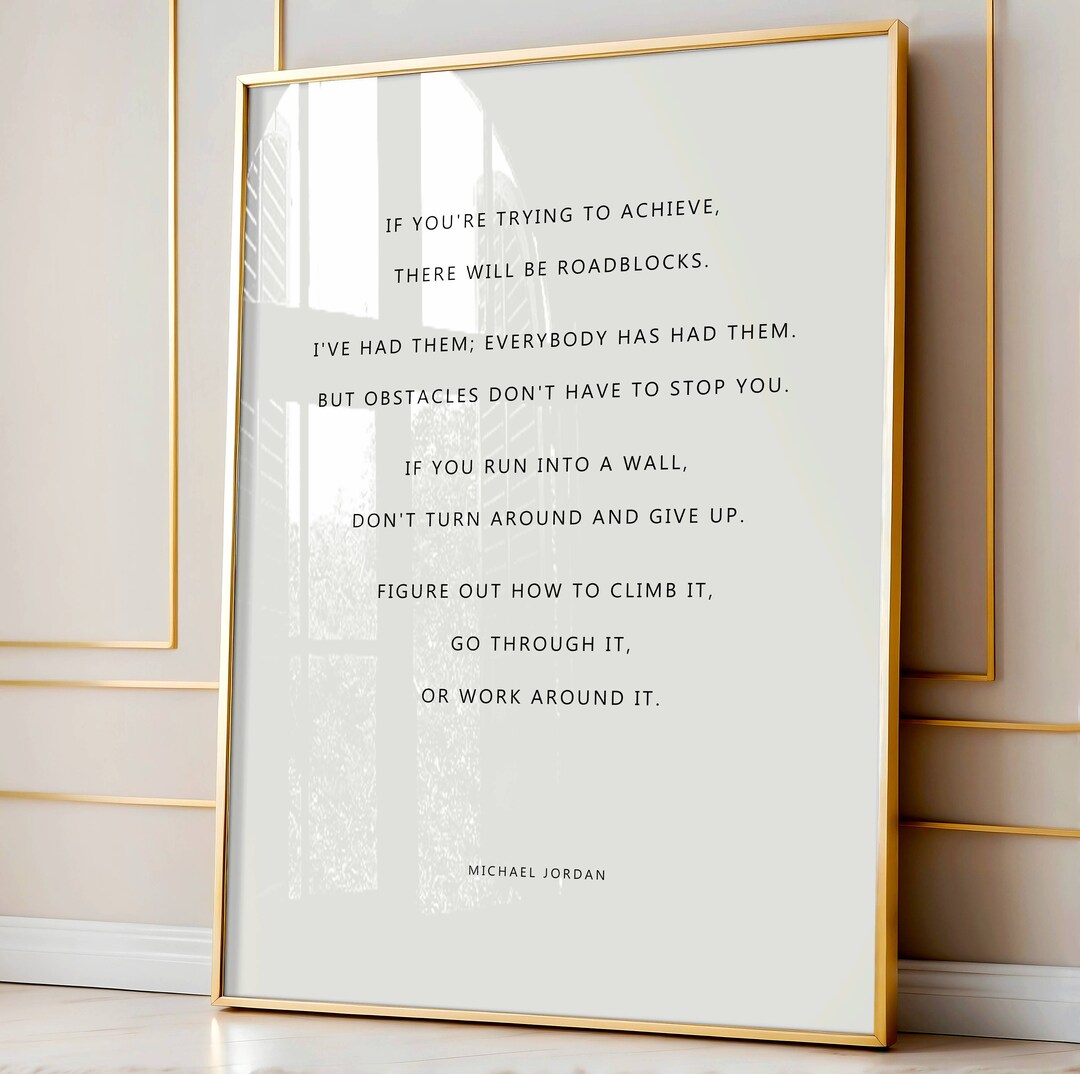 IF YOU'RE TRYING TO ACHIEVE,
THERE WILL BE ROADBLOCKS.
I'VE HAD THEM; EVERYBODY HAS HAD THEM.
BUT OBSTACLES DON'T HAVE TO STOP YOU.
IF YOU RUN INTO A WALL,
DON'T TURN AROUND AND GIVE UP.
FIGURE OUT HOW TO CLIMB IT,
GO THROUGH IT,
OR WORK AROUND IT.
MICHAEL JORDAN